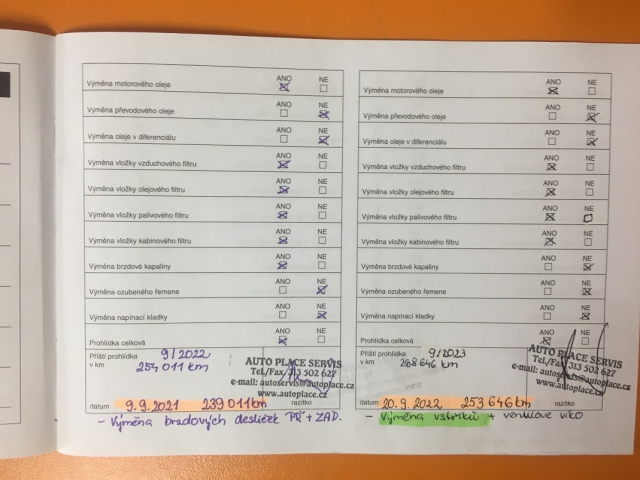 ANO NE
Výměna motorového oleje
ANO NE
Výměna převodového oleje
ANO NE
Výměna oleje v diferenciálu
ANO NE
Výměna vložky vzduchového filtru
ANO NE
Výměna vložky olejového filtru
ANO NE
Výměna vložky palivového filtru
ANO NE
Výměna vložky kabinového filtru
ANO NE
Výměna brzdové kapaliny
ANO NE
Výměna ozubeného řemene
ANO NE
Výměna napínací kladky
ANO NE
Prohlídka celková
Příští prohlídka 9/2022
v km 254 011 km
AUTO PLACE SERVIS
Tel./Fax 313 502 627
e-mail: autoservis@autoplace.cz
www.autoplace.cz
datum 9.9.2021 239 011km razítko
- Výměna bradových destiček PŘ + ZAD.
ANO NE
Výměna motorového oleje
ANO NE
Výměna převodového oleje
ANO NE
Výměna oleje v diferenciálu
ANO NE
Výměna vložky vzduchového filtru
ANO NE
Výměna vložky olejového filtru
ANO NE
Výměna vložky palivového filtru
ANO NE
Výměna vložky kabinového filtru
ANO NE
Výměna brzdové kapaliny
ANO NE
Výměna ozubeného řemene
ANO NE
Výměna napínací kladky
ANO NE
Prohlídka celková
Příští prohlídka 9/2023
v km 268 646 km
AUTO PLACE SERVIS
Tel./Fax 313 502 627
e-mail: autoservis@autoplace.cz
www.autoplace.cz
datum 20.9.2022 253 646km razítko
- Výměna vstřiků + ventilové víko